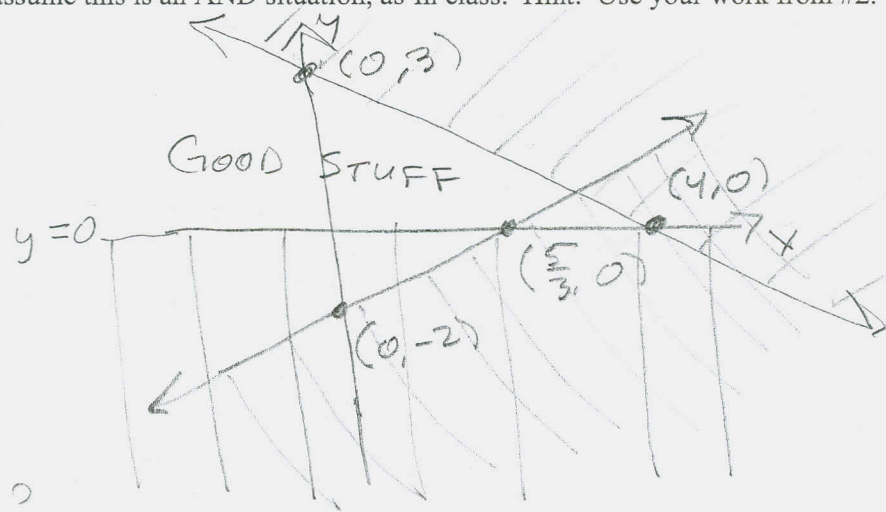 assume this is an AND situation, as in class. Hint: Use your work from #2.
y
(0,3)
GOOD STUFF
(4,0)
y=0
x
(5/3, 0)
(0,-2)